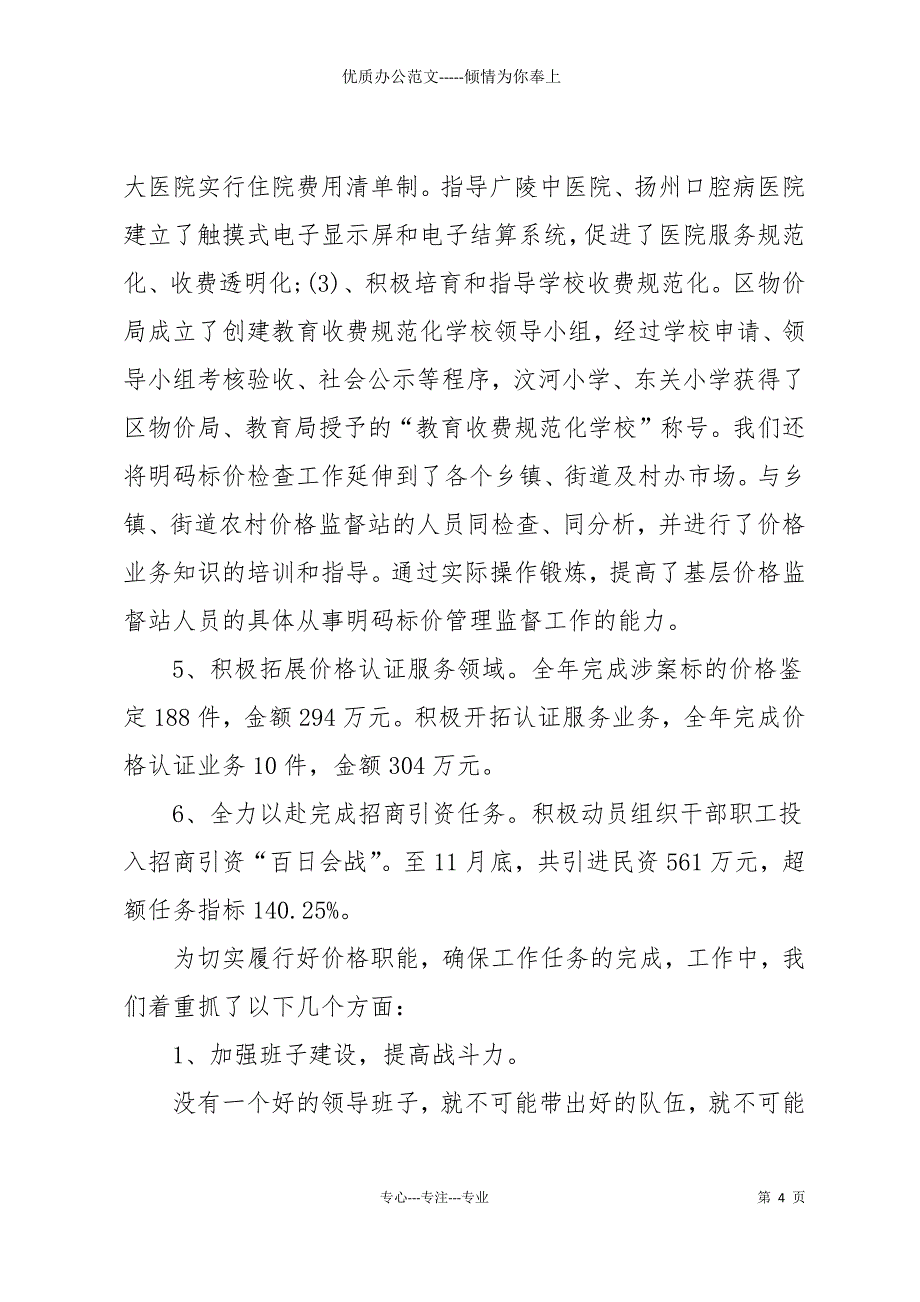 优质办公范文-----倾情为你奉上
大医院实行住院费用清单制。指导广陵中医院、扬州口腔病医院
建立了触摸式电子显示屏和电子结算系统，促进了医院服务规范
化、收费透明化;(3)、积极培育和指导学校收费规范化。区物价
局成立了创建教育收费规范化学校领导小组，经过学校申请、领
导小组考核验收、社会公示等程序，汶河小学、东关小学获得了
区物价局、教育局授予的“教育收费规范化学校”称号。我们还
将明码标价检查工作延伸到了各个乡镇、街道及村办市场。与乡
镇、街道农村价格监督站的人员同检查、同分析，并进行了价格
业务知识的培训和指导。通过实际操作锻炼，提高了基层价格监
督站人员的具体从事明码标价管理监督工作的能力。
5、积极拓展价格认证服务领域。全年完成涉案标的价格鉴
定 188 件，金额 294 万元。积极开拓认证服务业务，全年完成价
格认证业务 10 件，金额 304 万元。
6、全力以赴完成招商引资任务。积极动员组织干部职工投
入招商引资“百日会战”。至 11 月底，共引进民资 561 万元，超
额任务指标 140.25%。
为切实履行好价格职能，确保工作任务的完成，工作中，我
们着重抓了以下几个方面：
1、加强班子建设，提高战斗力。
没有一个好的领导班子，就不可能带出好的队伍，就不可能
专心---专注---专业
第 4 页